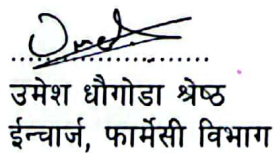 उमेश धौगोडा श्रेष्ठ
ईन्चार्ज, फार्मेसी विभाग